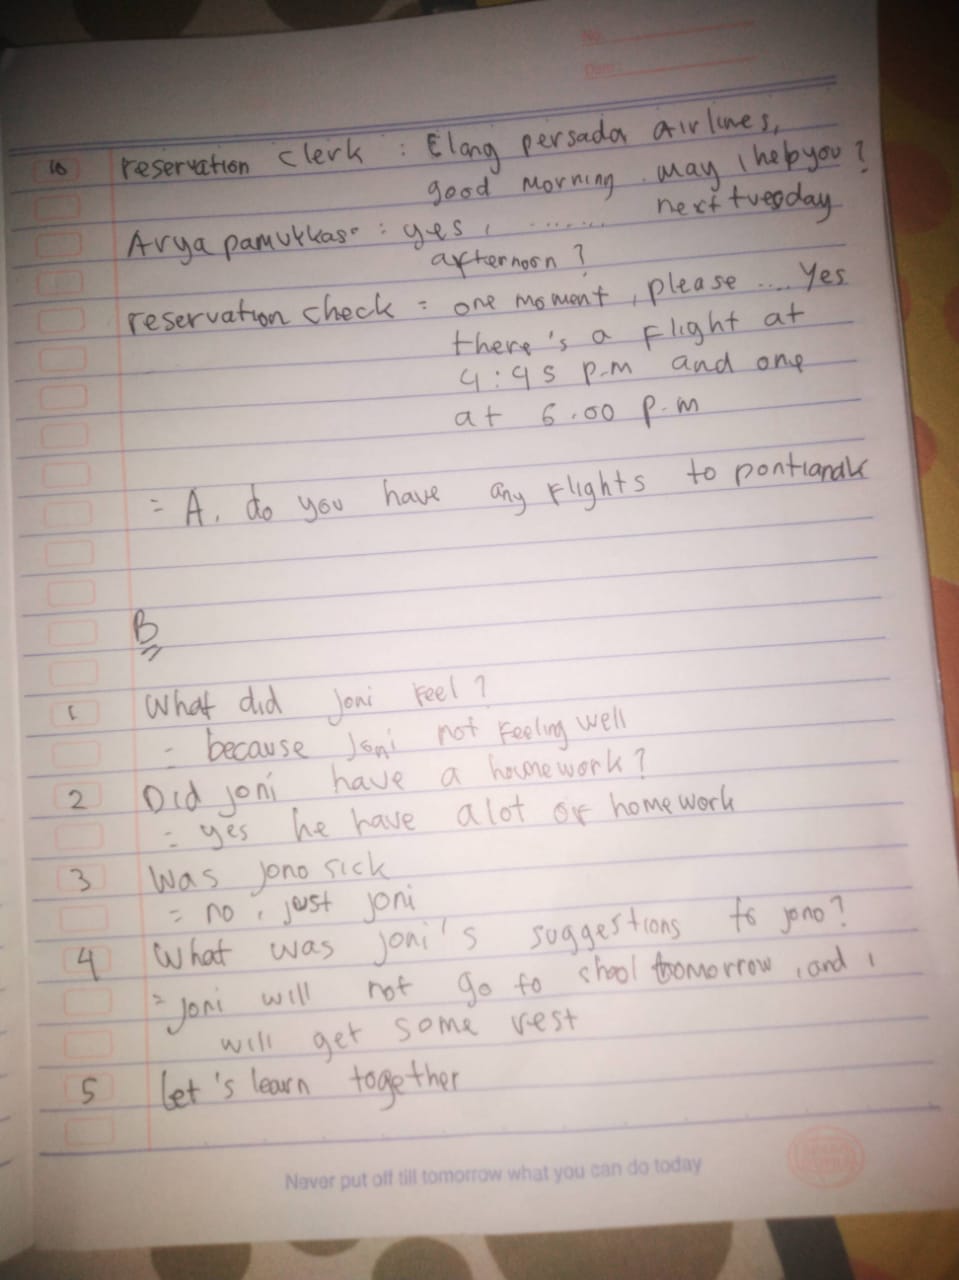 No.
Date:
10 reservation clerk : Elang persada airlines,
good morning. may i help you?
Arya pamukkas : yes, ....... next tuesday
afternoon?
reservation check = one moment, please .... Yes
there's a flight at
4:45 p.m and one
at 6.00 p.m
= A. do you have any flights to pontianak
B
1 What did Joni feel?
= because Joni not feeling well
2 Did joni have a homework?
= yes he have alot of homework
3 Was jono sick
= no, just joni
4 What was joni's suggestions to jono?
= joni will not go to shool tomorrow, and i
will get some rest
5 Let's learn together
Never put off till tomorrow what you can do today